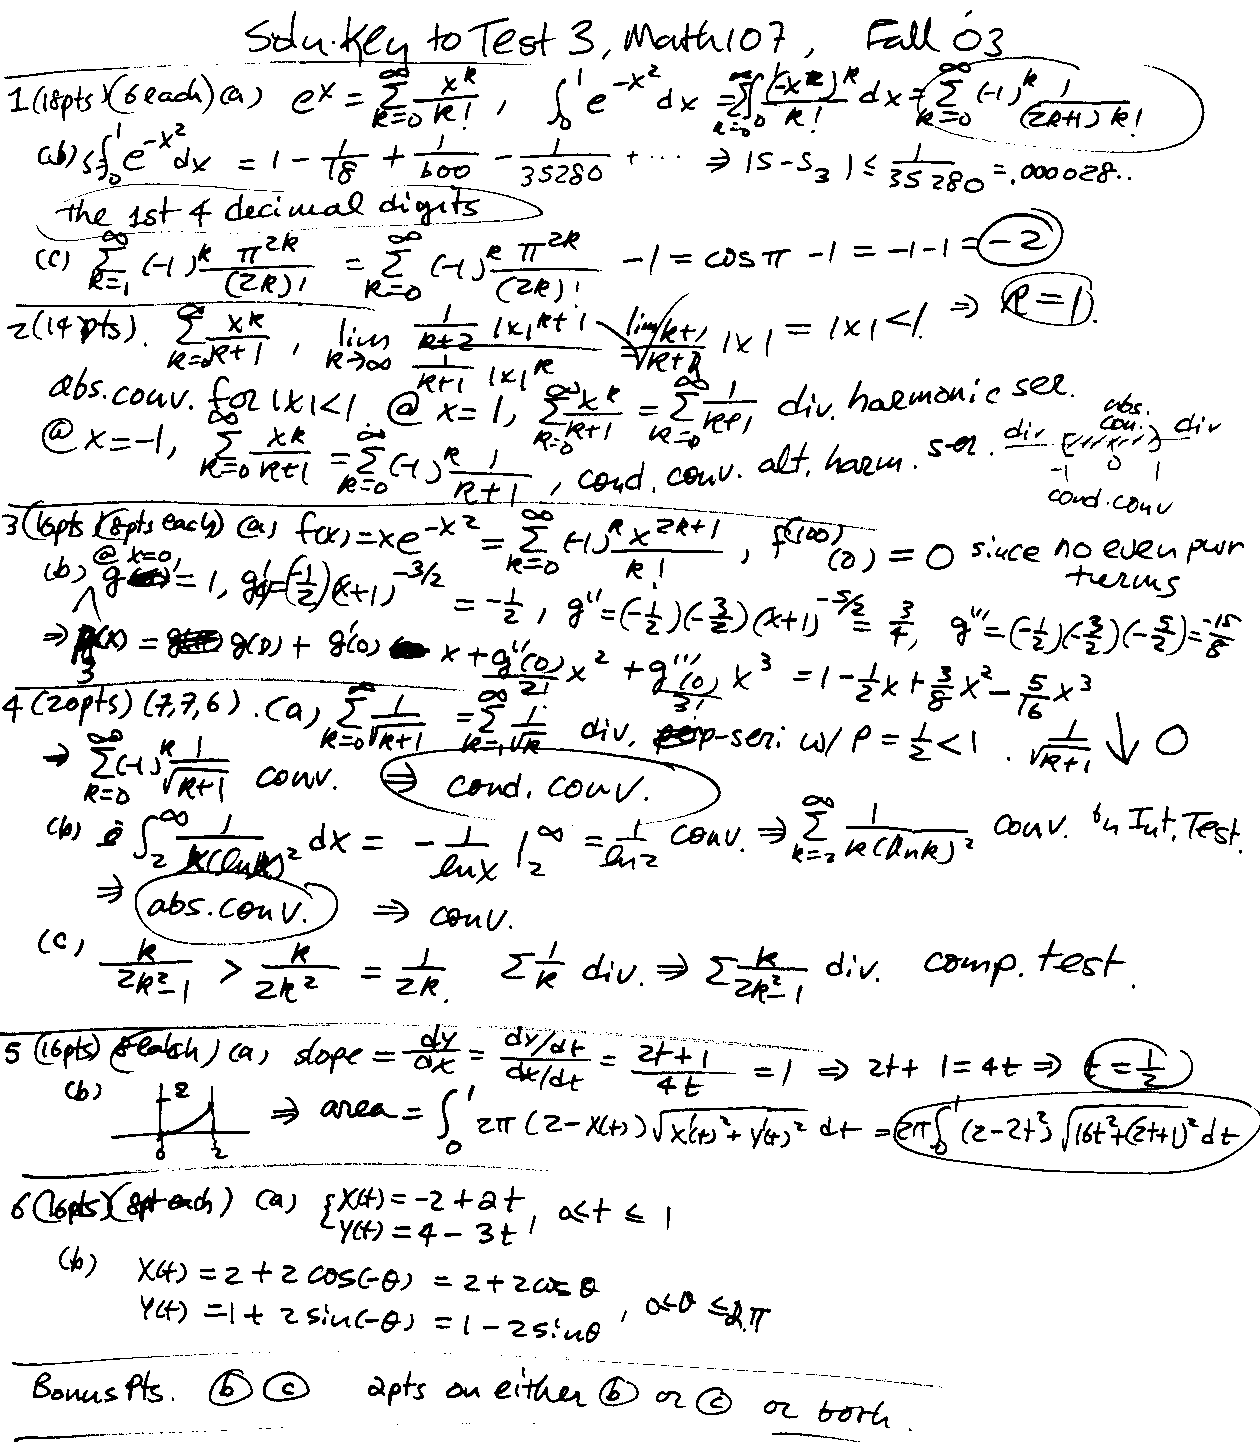 Soln. Key to Test 3, Math 107, Fall 03
1 (18pts)(6 each) (a) e^x = ∑_{k=0}^∞ x^k/k!, ∫_0^1 e^{-x^2} dx = ∑_{k=0}^∞ ∫_0^1 (-x^2)^k/k! dx = ∑_{k=0}^∞ (-1)^k 1/((2k+1) k!)
(b) S = ∫_0^1 e^{-x^2} dx = 1 - 1/18 + 1/600 - 1/35280 + ··· ⇒ |S - S_3| ≤ 1/35280 = .000028..
the 1st 4 decimal digits
(c) ∑_{k=1}^∞ (-1)^k π^{2k}/(2k)! = ∑_{k=0}^∞ (-1)^k π^{2k}/(2k)! - 1 = cos π - 1 = -1 - 1 = -2
2 (14pts). ∑_{k=0}^∞ x^k/(k+1), lim_{k→∞} (1/(k+2) |x|^{k+1})/(1/(k+1) |x|^k) = lim (k+1)/(k+2) |x| = |x| < 1 ⇒ R = 1.
abs. conv. for |x|<1. @ x=1, ∑_{k=0}^∞ x^k/(k+1) = ∑_{k=0}^∞ 1/(k+1) div. harmonic ser.
@ x=-1, ∑_{k=0}^∞ x^k/(k+1) = ∑_{k=0}^∞ (-1)^k 1/(k+1), cond. conv. alt. harm. ser. div abs. conv. div
-1 0 1
cond. conv
3 (16pts)(8pts each) (a) f(x) = xe^{-x^2} = ∑_{k=0}^∞ (-1)^k x^{2k+1}/k!, f^{(100)}(0) = 0 since no even pwr terms
(b) @ x=0 g = 1, g' = (-1/2)(x+1)^{-3/2} = -1/2, g'' = (-1/2)(-3/2)(x+1)^{-5/2} = 3/4, g''' = (-1/2)(-3/2)(-5/2) = -15/8
⇒ P_3(x) = g(0) + g'(0) x + g''(0)/2! x^2 + g'''(0)/3! x^3 = 1 - 1/2 x + 3/8 x^2 - 5/16 x^3
4 (20pts) (7,7,6). (a) ∑_{k=0}^∞ 1/√(k+1) = ∑_{k=1}^∞ 1/√k div. p-seri w/ P = 1/2 < 1. 1/√(k+1) ↓ 0
⇒ ∑_{k=0}^∞ (-1)^k 1/√(k+1) conv. ⇒ cond. conv.
(b) ∫_2^∞ 1/(x(lnx)^2) dx = - 1/lnx |_2^∞ = 1/ln2 conv. ⇒ ∑_{k=2}^∞ 1/(k(lnk)^2) conv. by Int. Test.
⇒ abs. conv. ⇒ conv.
(c) k/(2k^2-1) > k/(2k^2) = 1/(2k). ∑ 1/k div. ⇒ ∑ k/(2k^2-1) div. comp. test.
5 (16pts) (8 each) (a) slope = dy/dx = (dy/dt)/(dx/dt) = (2t+1)/(4t) = 1 ⇒ 2t+1 = 4t ⇒ t = 1/2
(b) 2 0 2 ⇒ area = ∫_0^1 2π (2-x(t)) √(x'(t)^2 + y'(t)^2) dt = 2π ∫_0^1 (2-2t^2) √(16t^2+(2t+1)^2) dt
6 (16pts)(8pt each) (a) { x(t) = -2 + 2t
y(t) = 4 - 3t, 0 ≤ t ≤ 1
(b) x(t) = 2 + 2 cos(-θ) = 2 + 2 cos θ
y(t) = 1 + 2 sin(-θ) = 1 - 2 sin θ, 0 ≤ θ ≤ 2π
Bonus Pts. (b) (c) 2pts on either (b) or (c) or both.